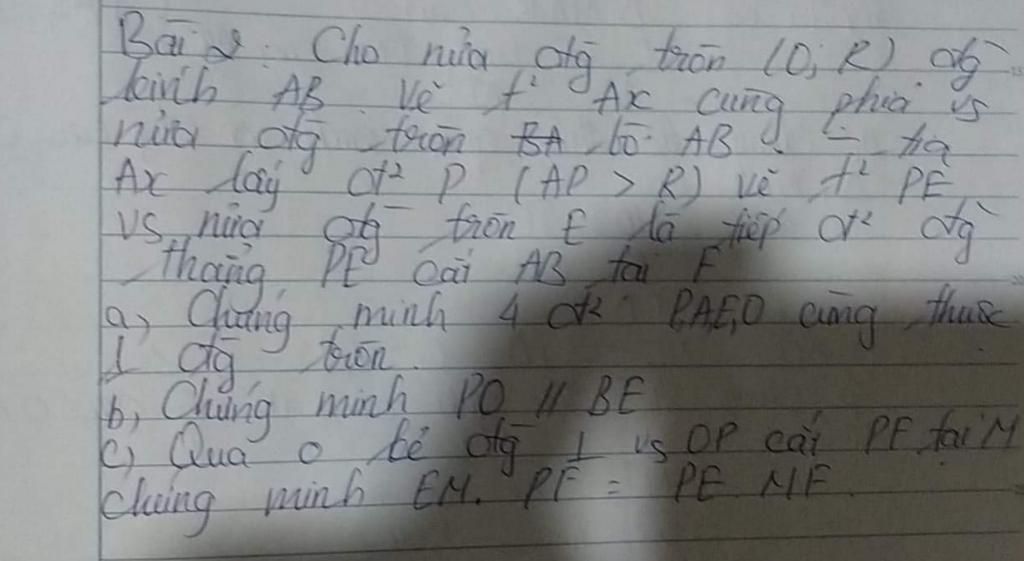 Bài 2: Cho nửa đtg tròn (O; R) đtg
kính AB. Vẽ t² Ax cùng phía vs
nửa đtg tròn BA bờ AB. tia
Ax lấy đ² P (AP > R) vẽ t² PE
vs nửa đtg tròn E là tiếp đ² đtg
thẳng PE cắt AB tại F
a, Chứng minh 4 đ² P,A,E,O cùng thuộc
1 đtg tròn.
b, Chứng minh PO // BE
c, Qua O kẻ đtg ⊥ vs OP cắt PF tại M
chứng minh EM. PF = PE. MF